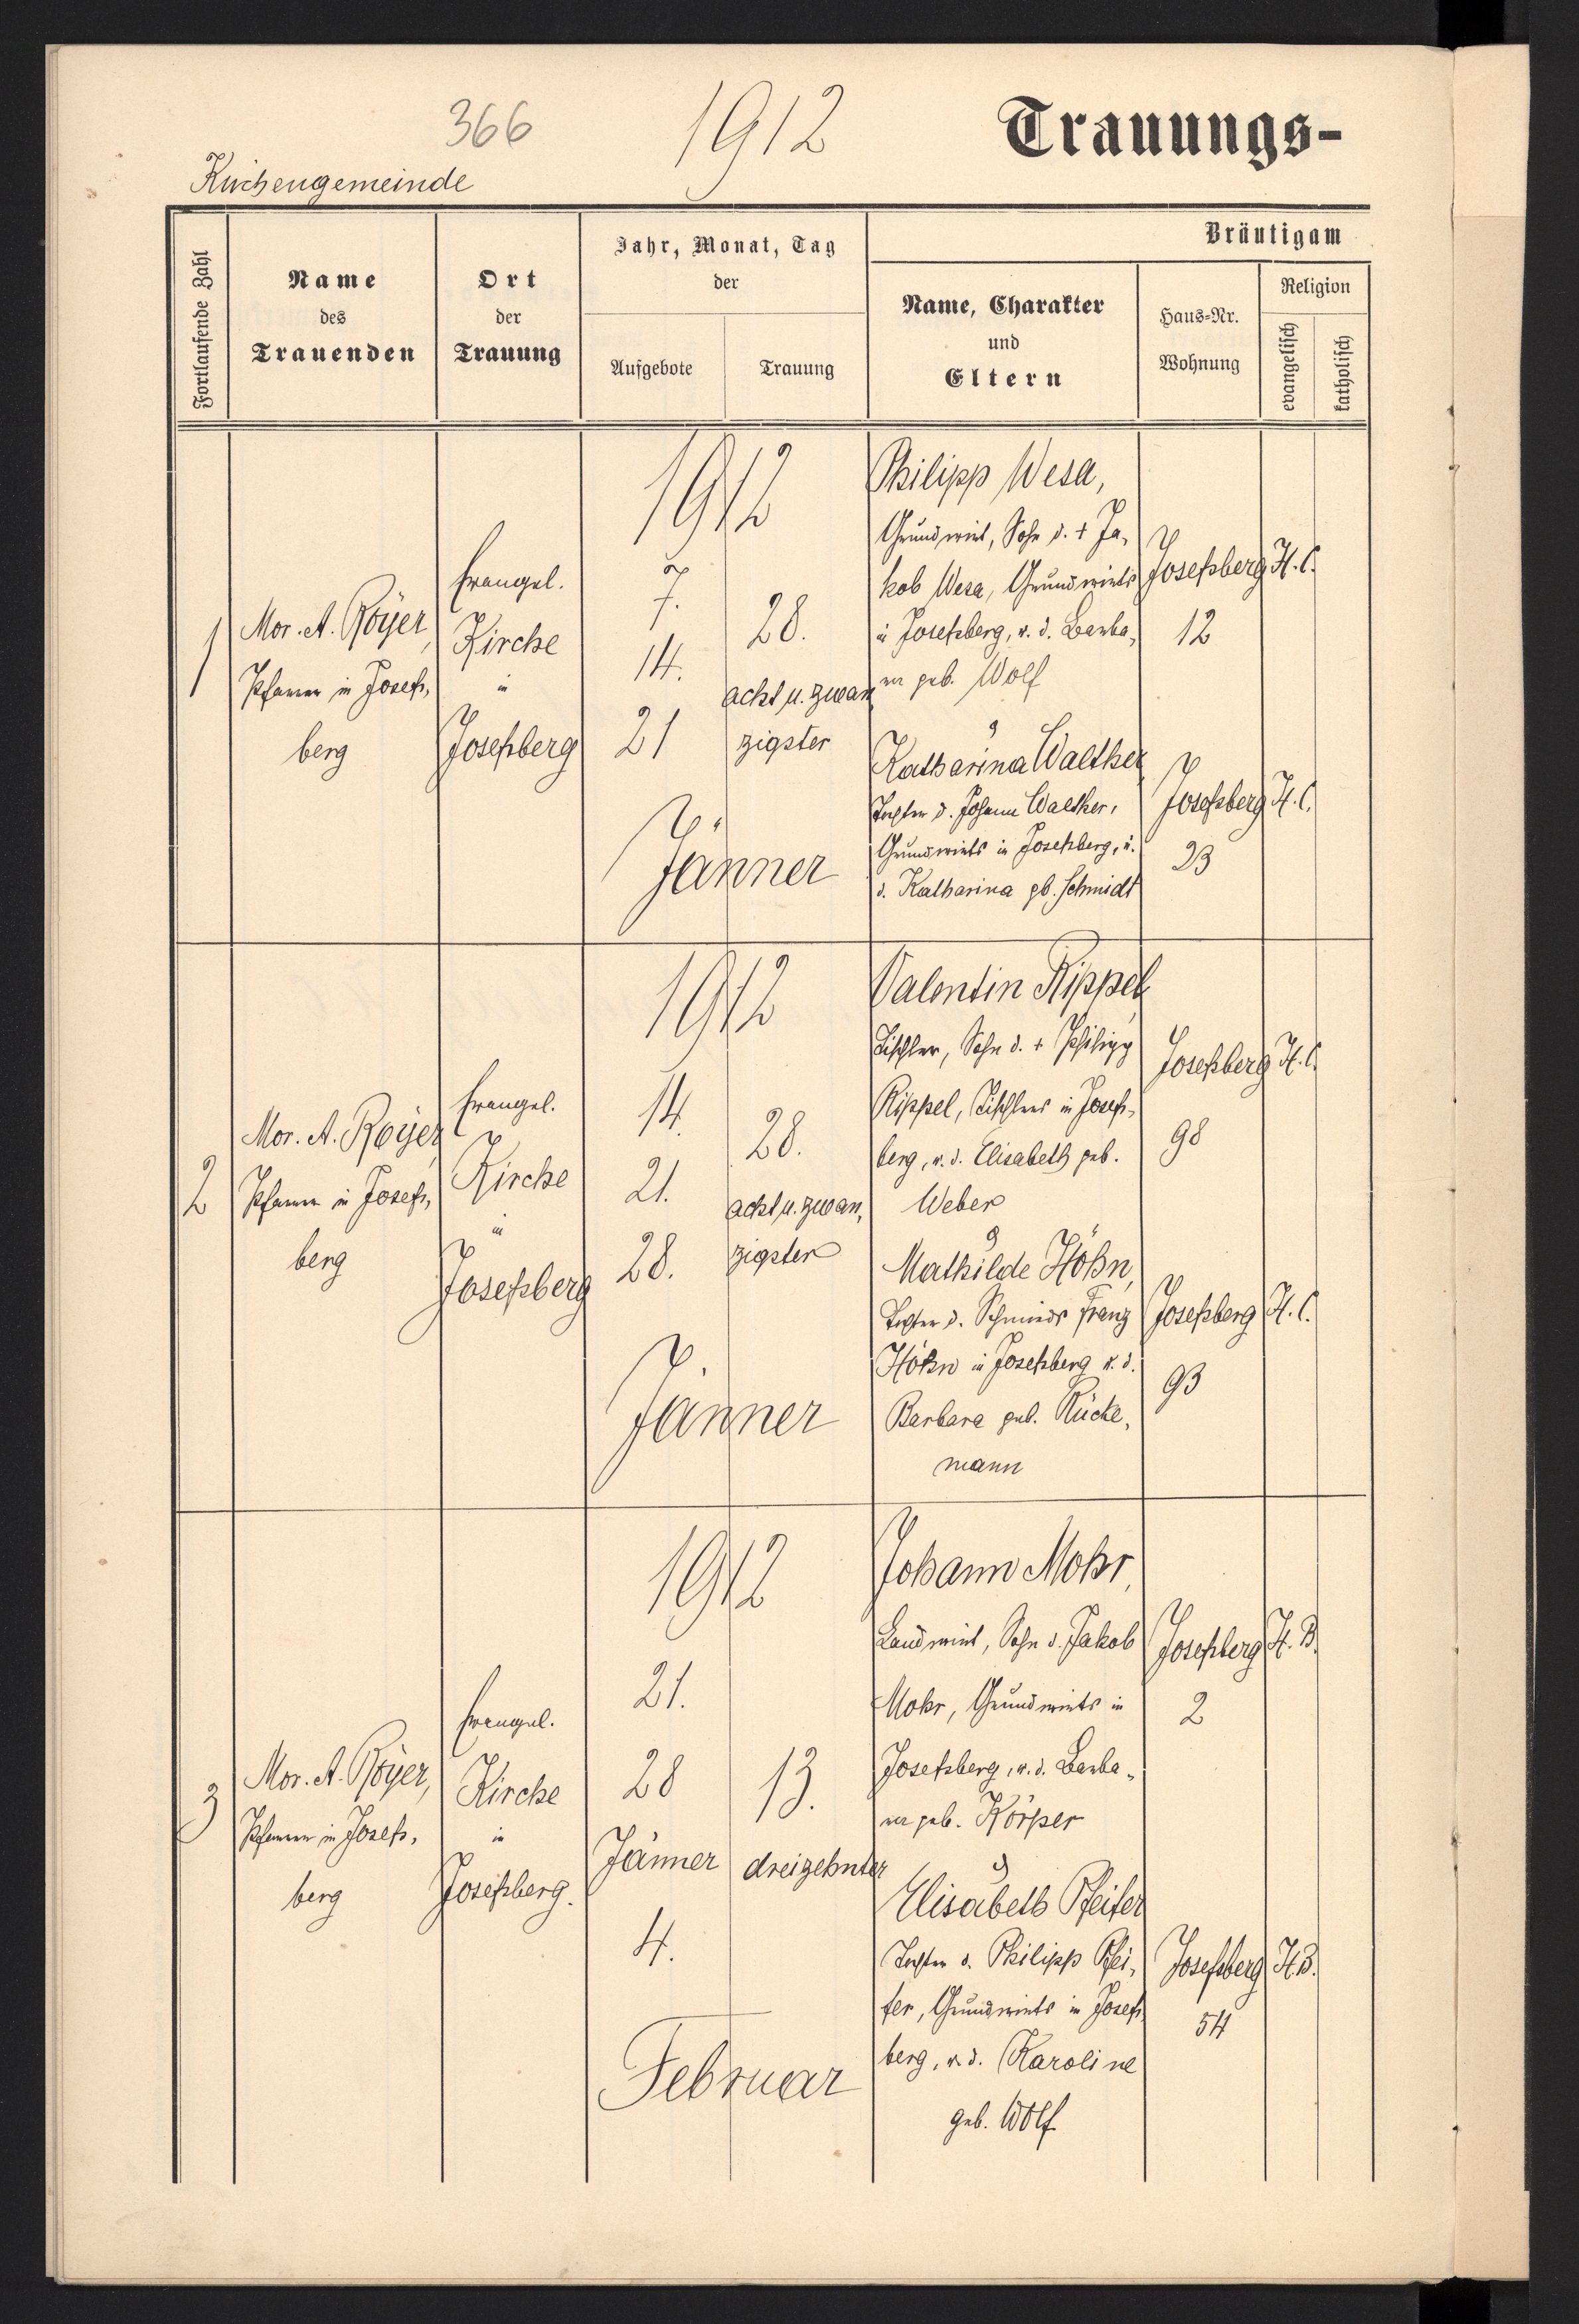 366
1912
Trauungs-
Kirchengemeinde
Fortlaufende Zahl
Name
des
Trauenden
Ort
der
Trauung
Jahr, Monat, Tag
der
Aufgebote
Trauung
Bräutigam
Name, Charakter
und
Eltern
Haus-Nr.
Wohnung
Religion
evangelisch
katholisch
1
Mor. A. Röyer,
Pfarrer in Josefs,
berg
Evangel.
Kirche
in
Josefsberg
1912
7.
14.
21
Jänner
28.
acht u. zwan
zigster
Philipp Wesa,
Grundwirt, Sohn d. + Ja,
kob Wesa, Grundwirts
in Josefsberg, u. d. Barba,
ra geb. Wolf
Josefsberg
12
H. C.
Katharina Walther
Tochter d. Johann Walther,
Grundwirts in Josefsberg, u.
d. Katharina gb. Schmidt
Josefsberg
23
H. C.
2
Mor. A. Röyer,
Pfarrer in Josefs,
berg
Evangel.
Kirche
in
Josefsberg
1912
14.
21.
28.
Jänner
28.
acht u. zwan,
zigster
Valentin Rippel,
Tischler, Sohn d. + Philipp
Rippel, Tischlers in Josefs,
berg, u. d. Elisabeth geb.
Weber
Josefsberg
98
H. C.
Mathilde Höhn,
Tochter d. Schmieds Franz
Höhn in Josefsberg u. d.
Barbara geb. Rücke,
mann
Josefsberg
93
H. C.
3
Mor. A. Röyer,
Pfarrer in Josefs,
berg
Evangel.
Kirche
in
Josefsberg.
1912
21.
28
Jänner
4.
Februar
13.
dreizehnter
Johann Mohr,
Landwirt, Sohn d. Jakob
Mohr, Grundwirts in
Josefsberg, u. d. Barba,
ra geb. Körper
Josefsberg
2
H. B.
Elisabeth Pfeifer
Tochter d. Philipp Pfei,
fer, Grundwirts in Josefs,
berg, u. d. Karoline
geb. Wolf
Josefsberg
54
H. B.